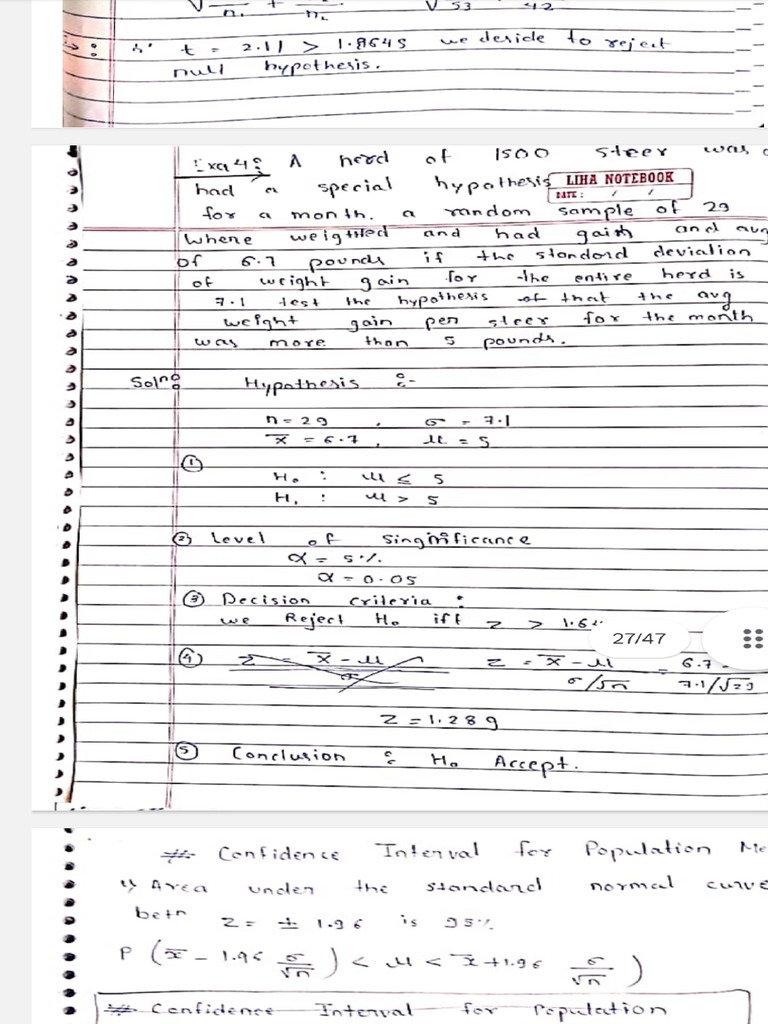 √ n₁ + n₂ √ 53 42
∴ t = 2.11 > 1.8645 we deside to reject
null hypothesis.
Exa 4: A herd of 1500 steer was
had a special hypothesis
LIHA NOTEBOOK
DATE: / /
for a month. a random sample of 29
where weighted and had gain and avg
of 6.7 pounds if the standord deviation
of weight gain for the entire herd is
7.1 test the hypothesis of that the avg
weight gain per steer for the month
was more than 5 pounds.
Solnº Hypothesis :-
n = 29 , σ = 7.1
x̄ = 6.7 , μ = 5
①
H₀ : μ ≤ 5
H₁ : μ > 5
② Level of singnificance
α = 5%.
α = 0.05
③ Decision criteria :
we Reject H₀ iff z > 1.64
27/47
④ z = x̄ - μ / σ z = x̄ - μ / σ/√n = 6.7 - / 7.1/√29
z = 1.289
⑤ Conclusion : H₀ Accept.
# Confidence Interval for Population Me
1) Area under the standard normal curve
betn z = ± 1.96 is 95%.
P (x̄ - 1.96 σ/√n) < μ < x̄ + 1.96 σ/√n)
# Confidence Interval for Population